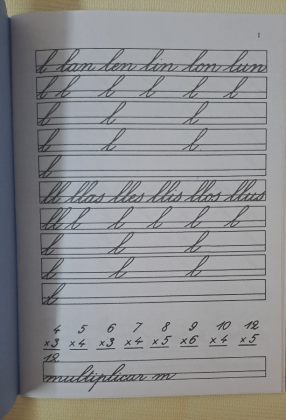 1
l lan len lin lon lun
l l l l l l l
l l l
l l l
l
ll llas lles llis llos llus
ll l l l l l
l l l
l l l
l
4 5 6 7 8 9 10 12
x3 x4 x3 x4 x5 x6 x4 x5
12
multiplicar m